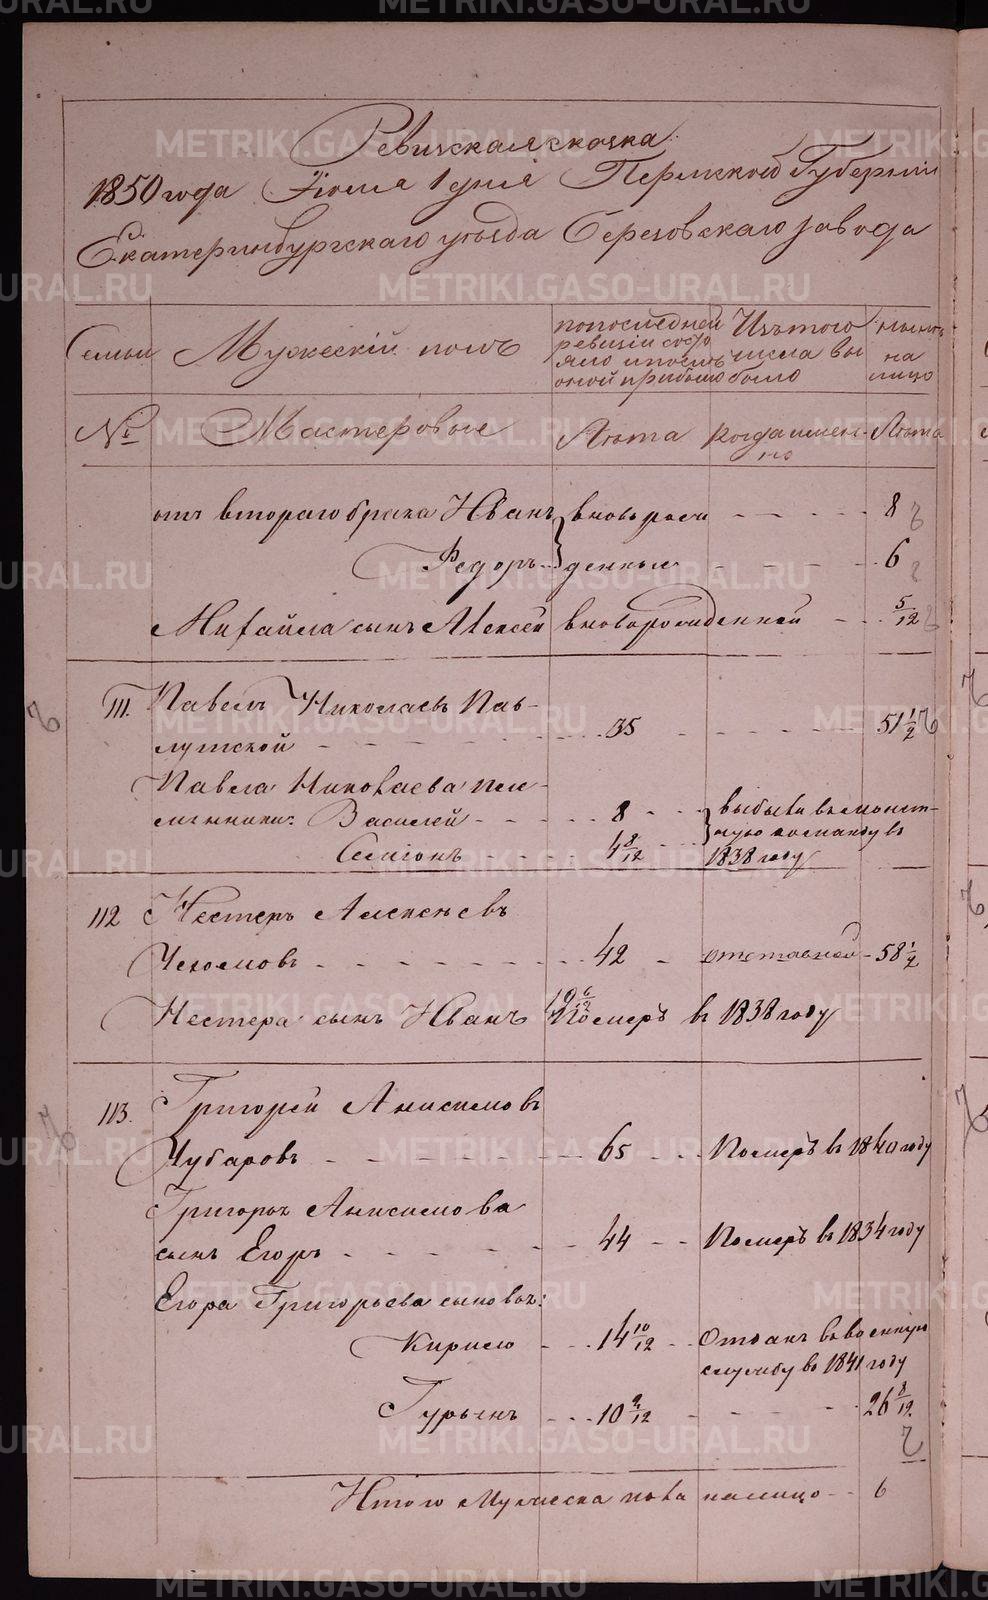 Ревизская сказка
1850 года Июля 1 дня Пермской Губернии
Екатеринбургскаго уезда Березовскаго завода
Семьи
Мужескій полъ
по последней ревизіи состояло и после оной прибыло
Изъ того числа выбыло
ныне на лицо
№
Мастеровые
Лета
когда именно
Лета
отъ втораго брака Иванъ вновь рож 8
Федоръ денные 6
Михайла сынъ Алексей вноворожденной 5/12
111. Павелъ Николаевъ Пав-
лутской 35 51 1/2
Павла Николаева пле-
мянники: Василей 8 выбыли въ
команду въ
Семіонъ 4 8/12 1838 году
112 Нестеръ Алексеевъ
Чехомовъ 42 отставной 58 1/2
Нестера сынъ Иванъ 19 6/12 Померъ въ 1838 году
113. Григорей Анисимовъ
Чубаровъ 65 Померъ въ 1840 году
Григорья Анисимова
сынъ Егоръ 44 Померъ въ 1834 году
Егора Григорьева сыновья:
Кирило 14 10/12 Отданъ въ военную
службу въ 1841 году
Гурьянъ 10 2/12 26 8/12
Итого Мужеска пола налицо 6
METRIKI.GASO-URAL.RU